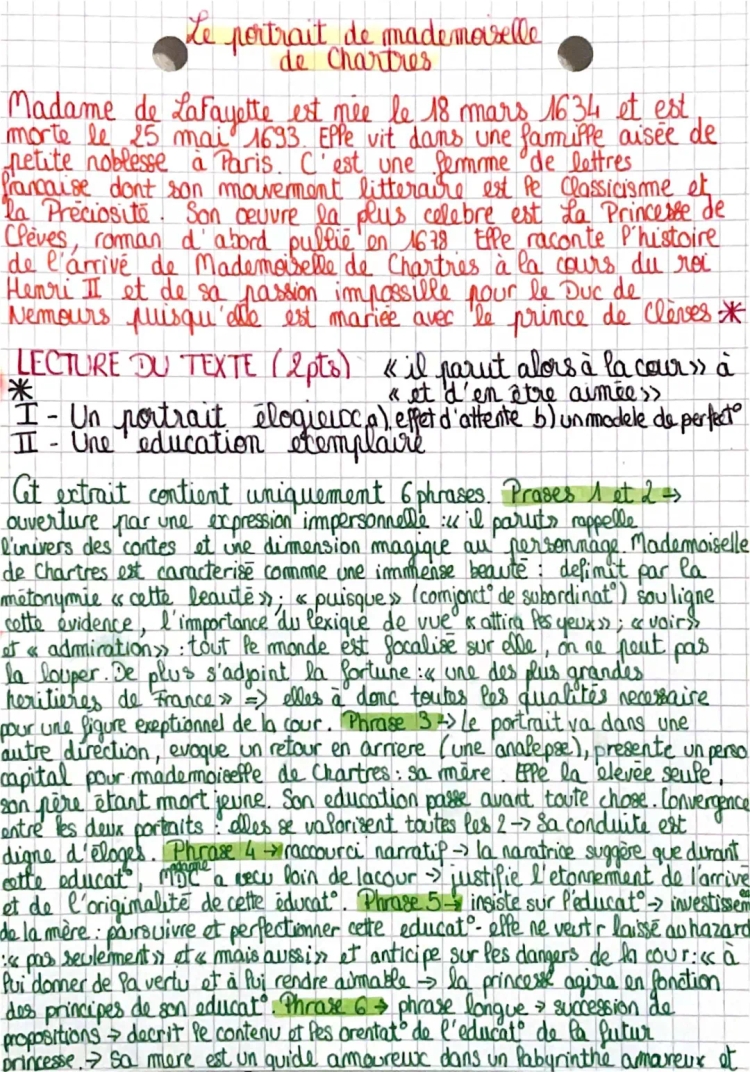 Le portrait de mademoiselle
de Chartres
Madame de Lafayette est née le 18 mars 1634 et est
morte le 25 mai 1693. Elle vit dans une famille aisée de
petite noblesse à Paris. C'est une femme de lettres
francaise dont son mouvement litteraire est le Classicisme et
la Préciosité. Son œuvre la plus celebre est La Princesse de
Clèves, roman d'abord publié en 1678 Elle raconte l'histoire
de l'arrivé de Mademoiselle de Chartres à la cours du roi
Henri II et de sa passion impossible pour le Duc de
Nemours puisqu'elle est mariée avec le prince de Clèves *
LECTURE DU TEXTE (2pts) « il parut alors à la cour » à
* « et d'en être aimée »
I - Un portrait élogieux a) effet d'attente b) un modele de perfect°
II - Une education exemplaire
Cet extrait contient uniquement 6 phrases. Prases 1 et 2 →
ouverture par une expression impersonnelle :« il parut » rappelle
l'univers des contes et une dimension magique au personnage. Mademoiselle
de Chartres est caracterisé comme une immense beauté : definit par la
métonymie « cette beauté » ; « puisque » (conjonct° de subordinat°) souligne
cette évidence, l'importance du lexique de vue « attira les yeux » ; « voir »
et « admiration » : tout le monde est focalisé sur elle, on ne peut pas
la louper. De plus s'adjoint la fortune :« une des plus grandes
heritières de France » => elles à donc toutes les qualités necessaire
pour une figure exeptionnel de la cour. Phrase 3 → Le portrait va dans une
autre direction, evoque un retour en arriere (une analepse), presente un perso
capital pour mademoiselle de Chartres : sa mère. Elle la elevée seule,
son père étant mort jeune. Son education passe avant toute chose. Convergence
entre les deux portraits : elles se valorisent toutes les 2 → Sa conduite est
digne d'éloges. Phrase 4 → raccourci narratif → la naratrice suggère que durant
cette educat°, MDC a vecu loin de la cour → justifie l'etonnement de l'arrivé
et de l'originalité de cette éducat°. Phrase 5 → insiste sur l'educat° → investissem
de la mère : poursuivre et perfectionner cette educat° - elle ne veut r laissé au hazard
:« pas seulement » et « mais aussi » et anticipe sur les dangers de la cour :« à
lui donner de la vertu et à lui rendre aimable → la princesse agira en fonction
des principes de son educat°. Phrase 6 → phrase longue → succession de
propositions → decrit le contenu et les orentat° de l'educat° de la futur
princesse. → Sa mere est un guide amoureux dans un labyrinthe amoureux et